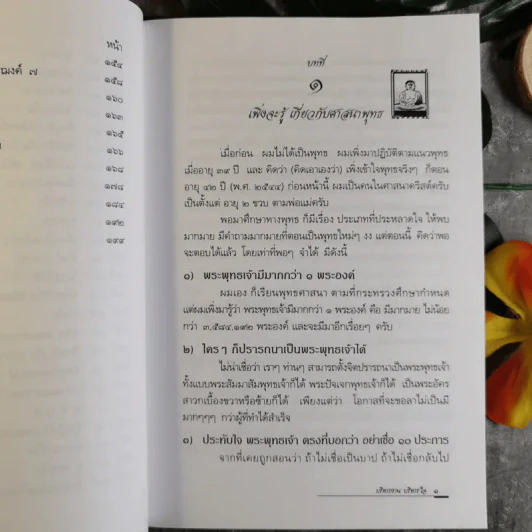 หน้า
๗
๑๕๔
๑๕๘
๑๖๐
๑๖๓
๑๖๕
๑๖๖
๑๖๘
๑๗๔
๑๘๔
๑๙๒
๑๙๙
บทที่
๑
เพิ่งจะรู้ เกี่ยวกับศาสนาพุทธ
เมื่อก่อน ผมไม่ได้เป็นพุทธ ผมเพิ่งมาปฏิบัติตามแนวพุทธ
เมื่ออายุ ๓๙ ปี และ คิดว่า (คิดเอาเองว่า) เพิ่งเข้าใจพุทธจริงๆ ก็ตอน
อายุ ๔๒ ปี (พ.ศ. ๒๕๔๔) ก่อนหน้านี้ ผมเป็นคนในศาสนาคริสต์ครับ
เป็นตั้งแต่ อายุ ๒ ขวบ ตามพ่อแม่ครับ
พอมาศึกษาทางพุทธ ก็มีเรื่อง ประเภทที่ประหลาดใจ ให้พบ
มากมาย มีคำถามมากมายที่ตอนเป็นพุทธใหม่ๆ งง แต่ตอนนี้ คิดว่าพอ
จะตอบได้แล้ว โดยเท่าที่พอๆ จำได้ มีดังนี้
๑) พระพุทธเจ้ามีมากกว่า ๑ พระองค์
ผมเอง ก็เรียนพุทธศาสนา ตามที่กระทรวงศึกษากำหนด
แต่ผมเพิ่งมารู้ว่า พระพุทธเจ้ามีมากกว่า ๑ พระองค์ คือ มีมากมาย ไม่น้อย
กว่า ๓,๕๘๔,๑๙๒ พระองค์ และจะมีมาอีกเรื่อยๆ ครับ
๒) ใครๆ ก็ปรารถนาเป็นพระพุทธเจ้าได้
ไม่น่าเชื่อว่า เราๆ ท่านๆ สามารถตั้งจิตปรารถนาเป็นพระพุทธเจ้า
ทั้งแบบพระสัมมาสัมพุทธเจ้าก็ได้ พระปัจเจกพุทธเจ้าก็ได้ เป็นพระอัคร
สาวกเบื้องขวาหรือซ้ายก็ได้ เพียงแต่ว่า โอกาสที่จะขอลาไม่เป็นมี
มากๆๆๆ กว่าผู้ที่ทำได้สำเร็จ
๓) ประทับใจ พระพุทธเจ้า ตรงที่บอกว่า อย่าเชื่อ ๑๐ ประการ
จากที่เคยถูกสอนว่า ถ้าไม่เชื่อเป็นบาป ถ้าไม่เชื่อกลับไป
๑